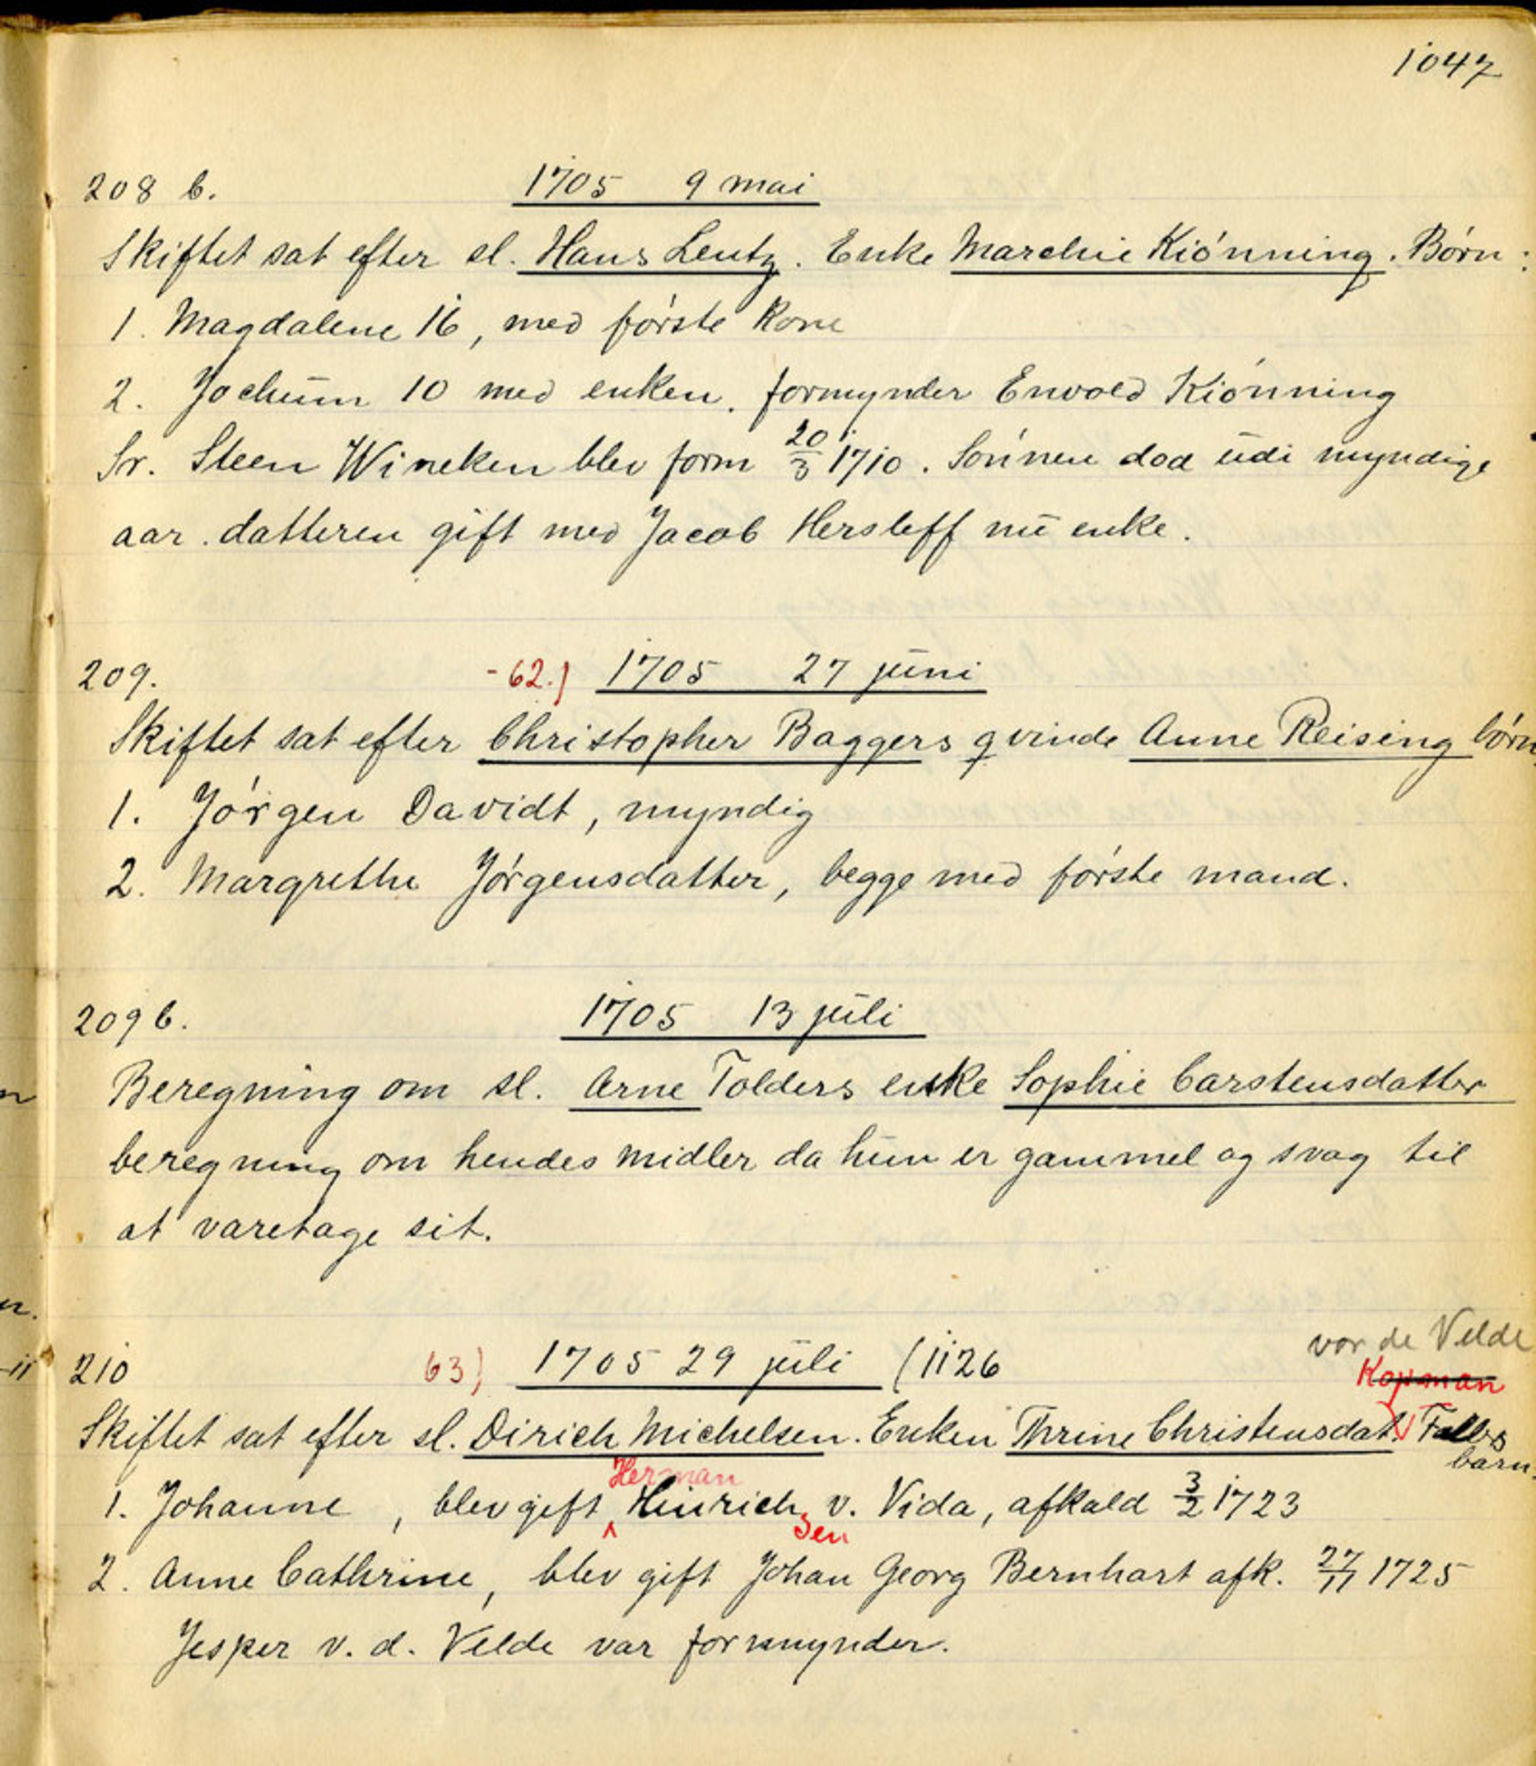 1047
208 b. 1705 9 mai
Skiftet sat efter sl. Hans Lentz. Enke Marchie Kiónning. Børn:
1. Magdalene 16, med første Kone
2. Jochum 10 med enken. formynder Envold Kiónning
Sr. Steen Wineken blev form 20/3 1710. Sónnen død udi myndige
aar. datteren gift med Jacob Hersleff nu enke.
209. -62.) 1705 27 juni
Skiftet sat efter Christopher Baggers qvinde Anne Reising børn,
1. Jórgen Davidt, myndig
2. Margrethe Jórgensdatter, begge med fórste mand.
209 b. 1705 13 juli
Beregning om sl. Arne Tolders enke Sophie Carstensdatter
beregning om hendes midler da hun er gammel og svag til
at varetage sit.
vor de Velde
210 63) 1705 29 juli (1126 Kopman
Skiftet sat efter sl. Dirich Michelsen. Enken Thrine Christensdat. Falbs
børn.
Herman
1. Johanne, blev gift Hinrich v. Vida, afkald 3/2 1723
sen
2. Anne Cathrine, blev gift Johan Georg Bernhart afk. 27/11 1725
Jesper v. d. Velde var formynder.